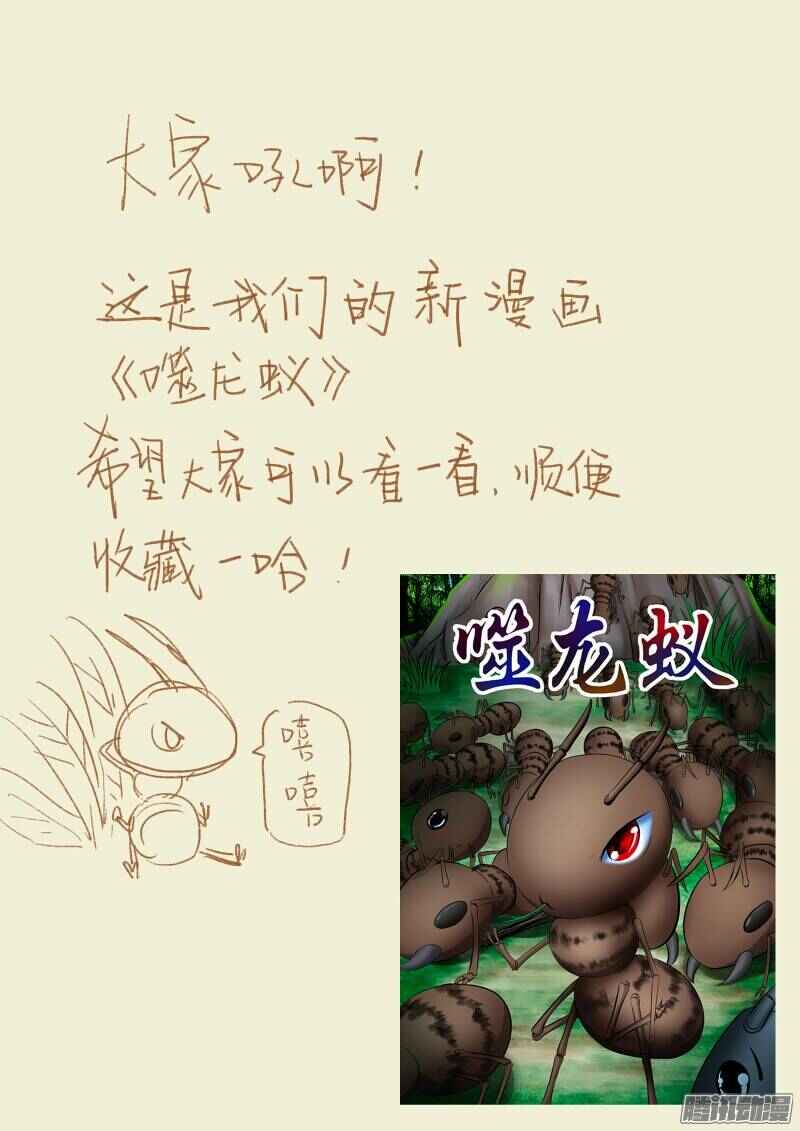 大家吼啊！
这是我们的新漫画
《噬龙蚁》
希望大家可以看一看，顺便
收藏一哈！
嘻
嘻
噬龙蚁
腾讯动漫